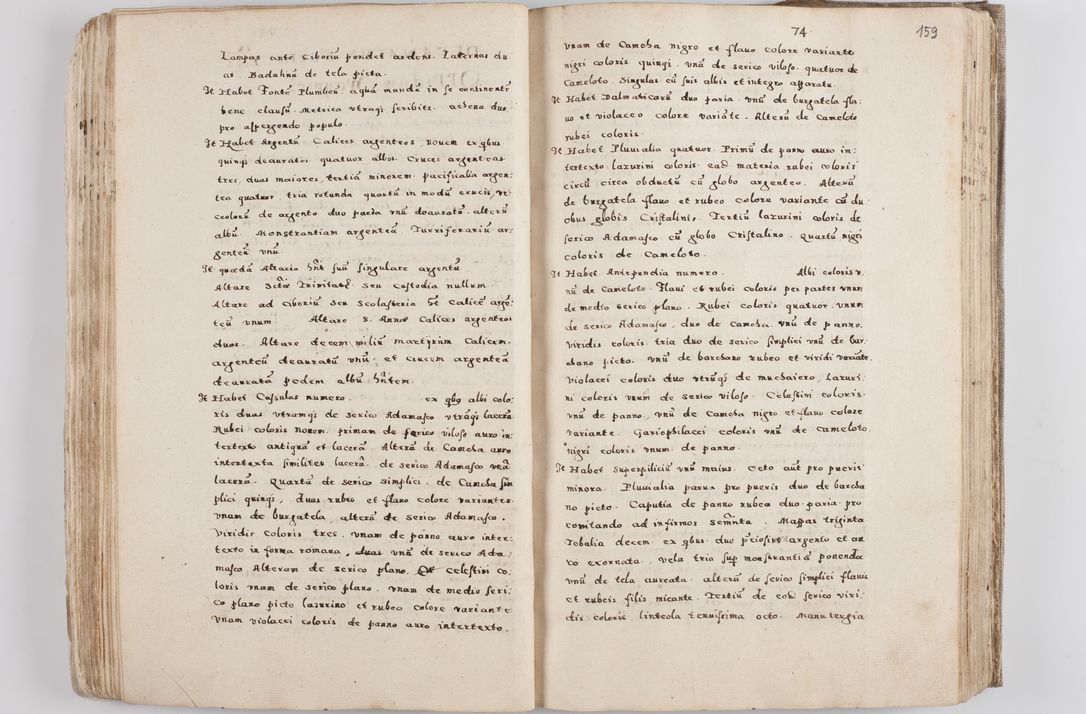 Lampas ante Ciboriū pendet ardens. Laternas du
as. Badahinū de tela picta.
It Habet Fontē Plumbeū. aquā mundā in se continentē
bene clausū. Metrica utraq; scribitr. achena duo
pro aspergendo populo.
It Habet Argentū Calices argenteos, nouem ex qbus
quinq; deauratos, quatuor albos. Cruces argenteas
tres, duas maiores, tertiā minorem. pacificalia argen:
tea quatuor, tria rotunda quartū in modū crucis, vr
ceolorū de argento duo paria vnū deauratū. alterū
albū. Monstrantiam argenteā. Turriferariū ar,
genteū vnū.
It quædā Altaria hn̄t suū singulare argentū
Altare Sctæ Trinitatꝭ. Seu Custodia nullum.
Altare ad Ciboriū Seu Scolasteria hēt Calicē argē:
teū vnum. Altare S. Annæ Calices argenteos
duos. Altare decem miliū martÿrum Calicem.
argenteū deauratū vnū. et Crucem argenteā
deauratā pedem albū hn̄tem.
It Habet Casulas numero. ex qbꝯ albi colo:
ris duas utramq; de serico Adamasco utraq; lacera.
Rubei coloris nouem. primam de serico viloso auro in:
tertexto antiquā et lacerā. Alterā de Camcha auro
intertexta similiter lacerā. de serico Adamasco vnā
lacerā. Quartā de serico simplici. de Camcha sim
plici quinq;, duas rubeo et flauo colore variantes.
vnam de burgatela, alterā de serico Adamasco.
Viridis coloris tres. vnam de panno auro inter:
texto in forma romana, duas vnā de serico Ada,
masco Alteram de serico plano. Celestini co:
loris vnam de serico plano. vnam de medio seri:
co plano picto lazurino et rubeo colore variante
Vnam violacei coloris de panno auro intertexto.
74.
159
vnam de Camcha nigro et flauo colore variante
nigri coloris quinq;. vnā de serico viloso. quatuor de
Cameloto. Singulas cū suis albis et integro apparatu.
It Habet Dalmaticarū duo paria. vnū de burgatela fla:
uo et violaceo colore variāte. Alterū de Cameloto
rubei coloris.
It Habet Pluuialia quatuor. Primū de panno auro in:
tertexto lazurini coloris. eadē materia rubei coloris
circū circa obductū cū globo argenteo. Alterū
de burgatela flauo et rubeo colore variante cū du
obus globis Cristalinis. Tertiū lazurini coloris de
serico Adamasco cū globo Cristalino. Quartū nigri
coloris de Cameloto.
It Habet Antependia numero. Albi coloris v:
nū de Cameloto. Flaui et rubei coloris per partes vnum
de medio serico plano. Rubei coloris quatuor. vnum
de serico Adamasco, duo de Camcha. vnū de panno.
viridis coloris. tria duo de serico simplici vnū de bar,
chano picto. vnū de barchano rubeo et viridi variāte.
violacei coloris duo utrūq; de muchaiero, Lazuri:
ni coloris vnum de serico viloso. Celestini coloris.
vnū de panno, vnū de Camcha nigro et flauo colore
variante. Gariophilacei coloris vnū de cameloto.
nigri coloris vnum. de panno.
It Habet Superpiliciū vnū maius. Octo aūt pro pueris
minora. Pluuialia parua pro pueris duo de barcha
no picto. Caputia de panno rubeo duo paria pro
comitando ad infirmos semn̄ta. Mappas triginta
Tobalia decem. ex qbus duo p̄ciosira argento et au
ro exornata, vela tria sup monstrantiā ponenda
vnū de tela aureata. alterū de serico simplici flauis
et rubeis filis micante. Tertiū de eodē serico viri:
dis coloris. linteola tenuissima octo. Manutergia